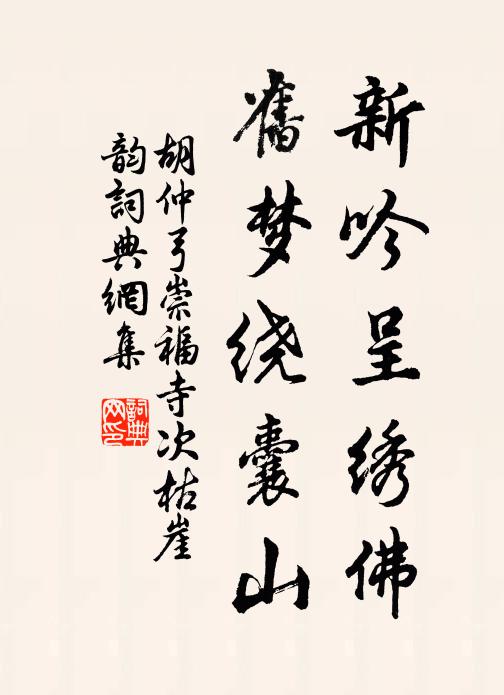 新吟呈绣佛
舊梦绕囊山
胡仲弓崇福寺次枯崖
韵詞典網集
詞典网印